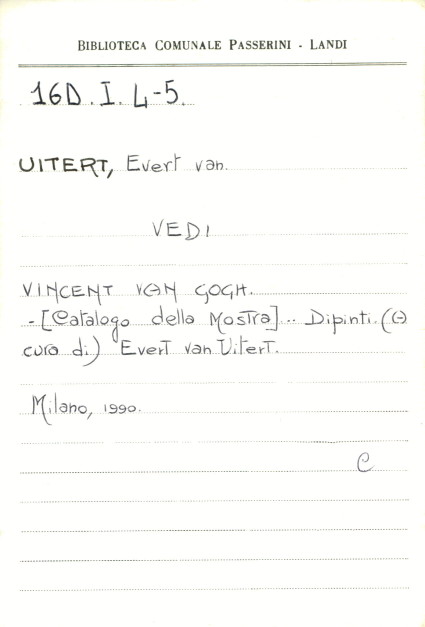 BIBLIOTECA COMUNALE PASSERINI - LANDI
16D.I.4-5.
UITERT, Evert van.
VEDI
VINCENT VAN GOGH.
-[Catalogo della Mostra]... Dipinti.(A
cura di) Evert van Uitert.
Milano, 1990.
C